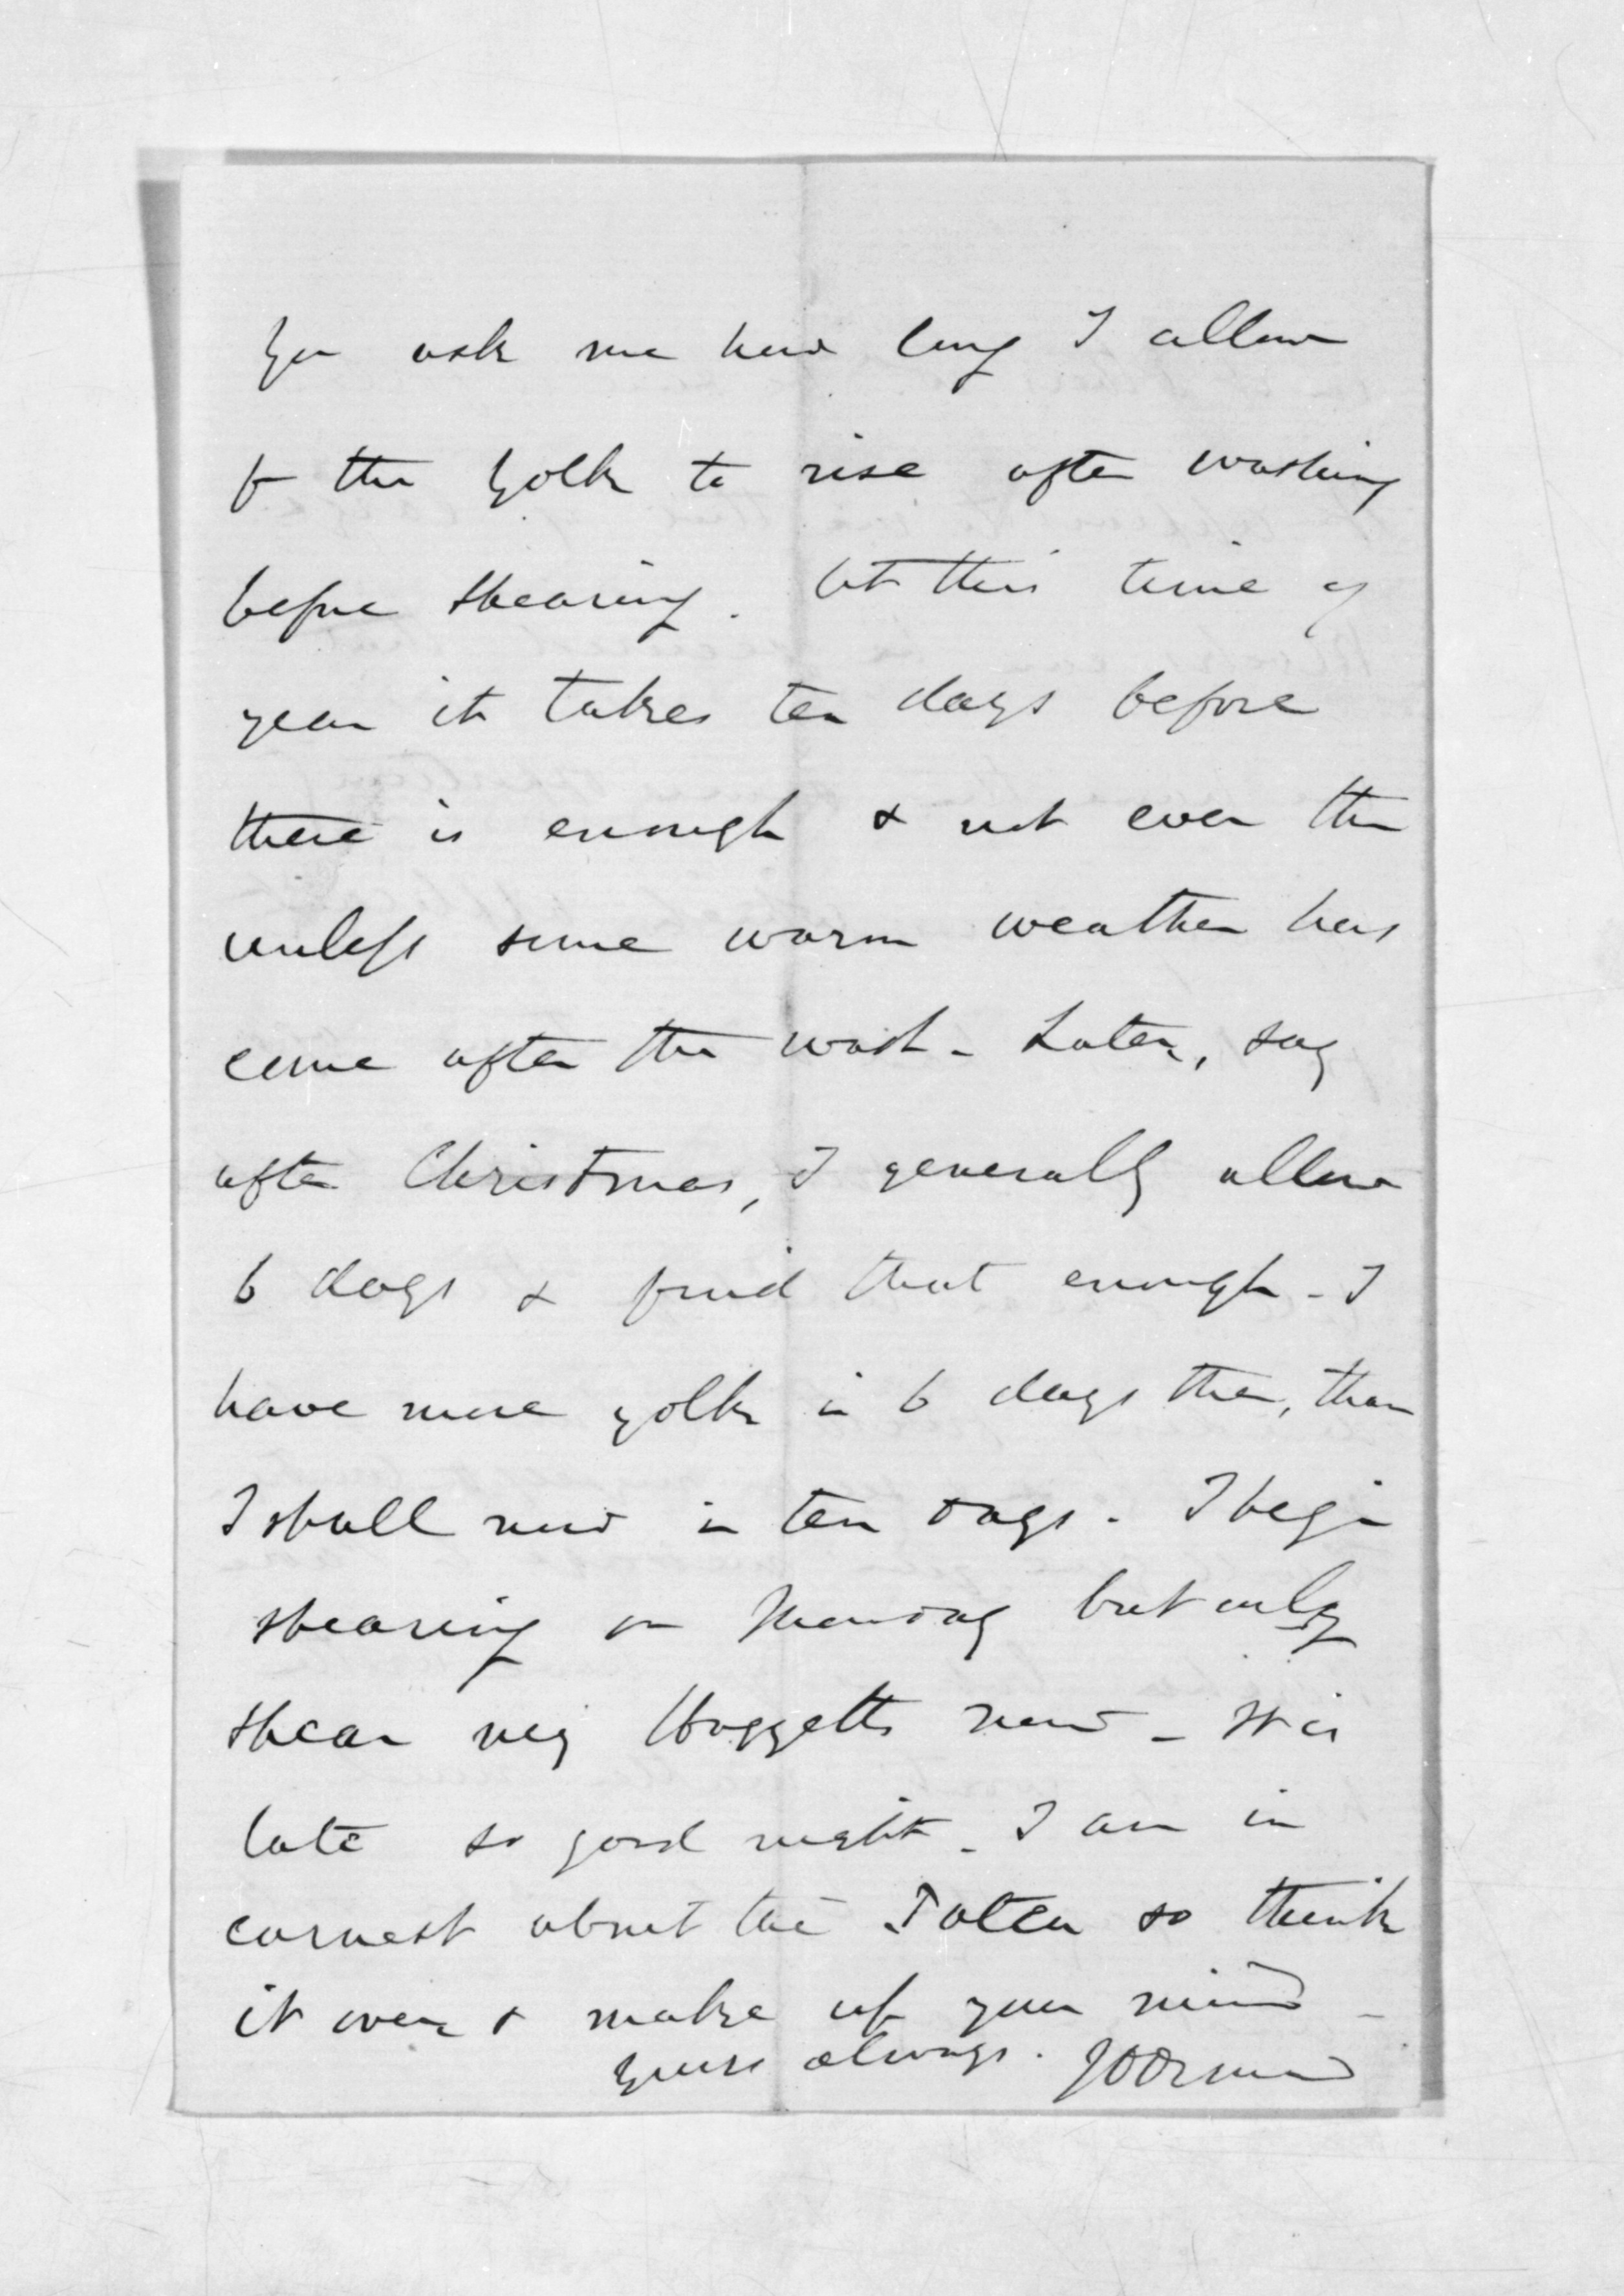 You ask me how long I allow
for the Yolk to rise after washing
before shearing. At this time of
year it takes ten days before
there is enough & not even then
unless some warm weather has
come after the wash - Later, say
after Christmas, I generally allow
6 days & find that enough - I
have more yolk in 6 days then, than
I shall now in ten days. I begin
shearing on Monday but only
shear my Hoggetts now - It is
late so good night - I am in
earnest about the so think
it over & make up your mind -
Yours always. JDOrmond